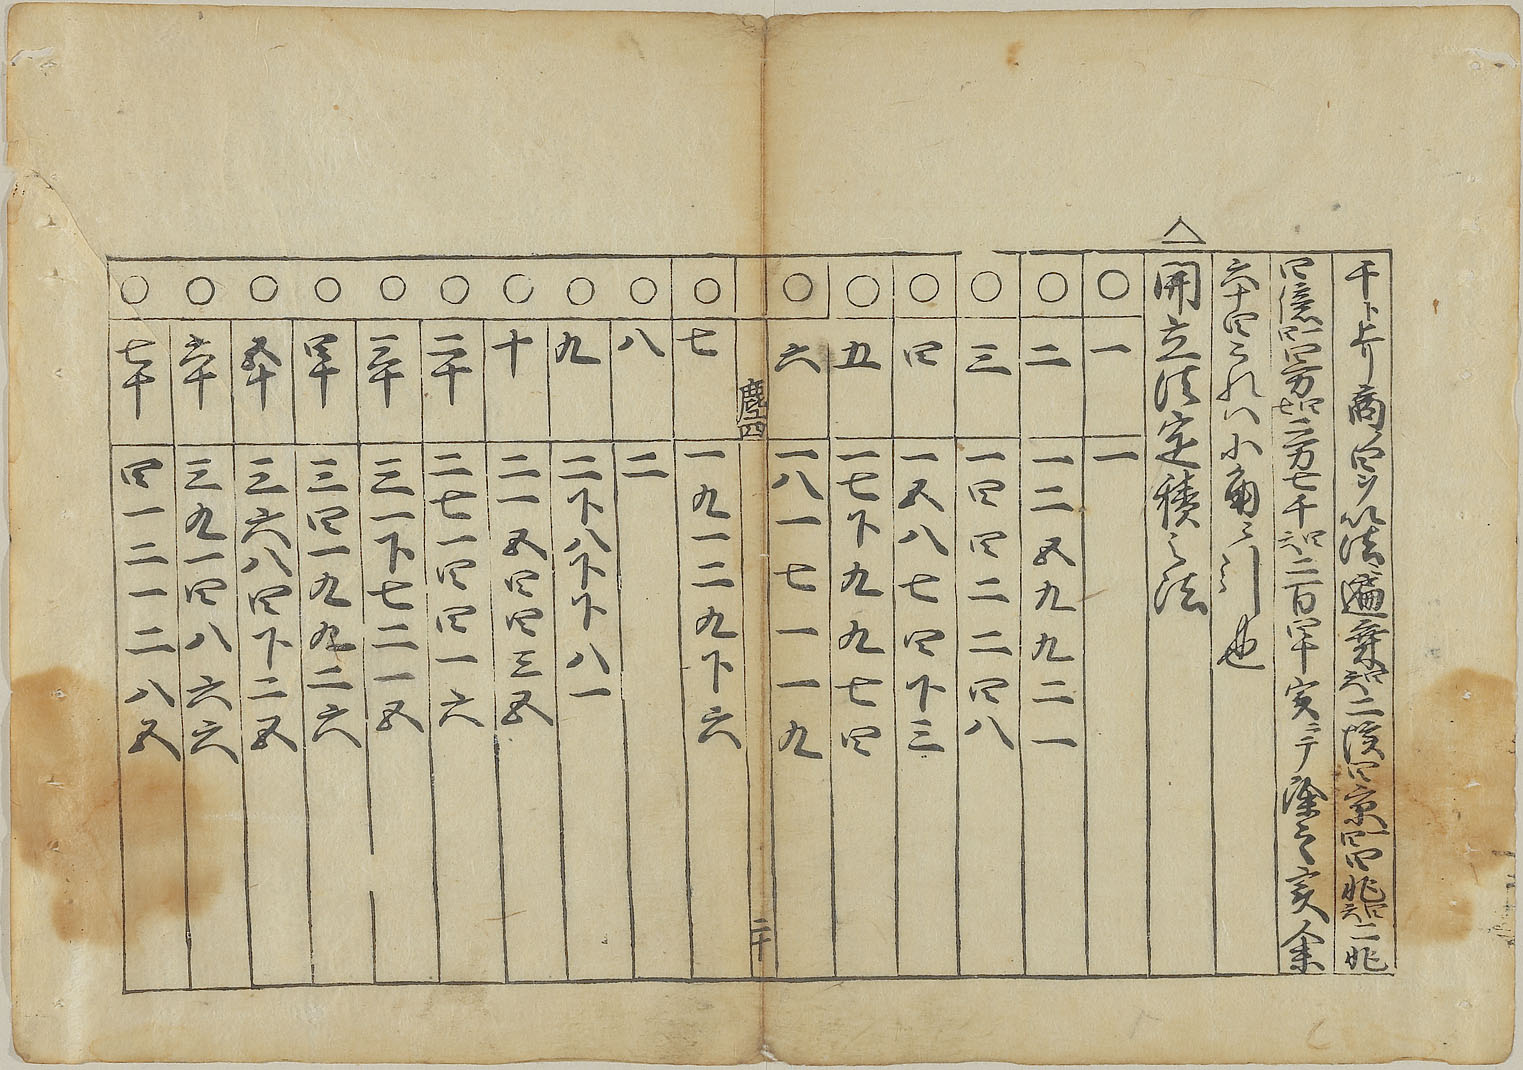 千下上り商四ツ以法遍棄
二百四十実ニテ除之実余
六十四これハ小角こ引也
△開立法定積之法
○一 一
○二 一二五九九二一
○三 一四四二二四八
○四 一五八七四下三
○五 一七下九九七四
○六 一八一七一一九
塵四 二十
○七 一九一二九下六
○八 二
○九 二下八下下八一
○十 二一五四四三五
○二十 二七一四四一六
○三十 三一下七二一五
○四十 三四一九九二六
○五十 三六八四下二五
○六十 三九一四八六六
○七十 四一二一二八五